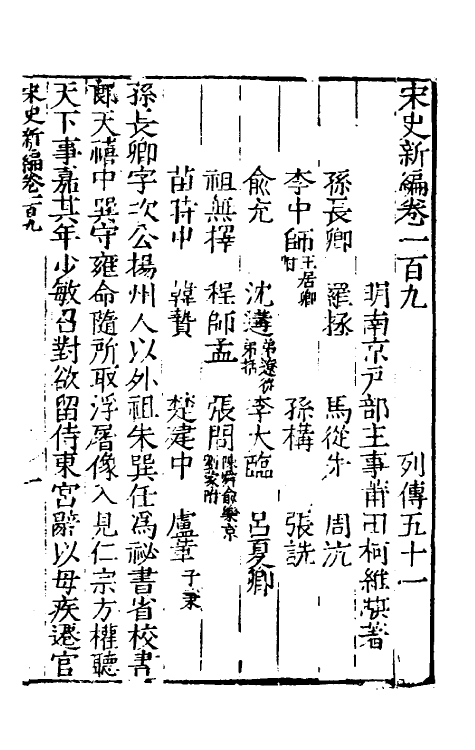 宋史新編卷一百九　列傳五十一
明南京戸部主事莆田柯維騏著
孫長卿　羅拯　馬從先　周沆
李中師王居卿附　孫構　張詵
俞充　沈遘弟遼從弟括　李大臨　呂夏卿
祖無擇　程師孟　張問陳舜俞樂京劉蒙附
苗時中　韓贄　楚建中　盧革子秉
孫長卿字次公揚州人以外祖朱巽任爲祕書省校書
郎天禧中巽守雍命隨所取浮屠像入見仁宗方權聽
天下事嘉其年少敏召對欲留侍東宮辭以母疾遷官
宋史新編卷一百九　一